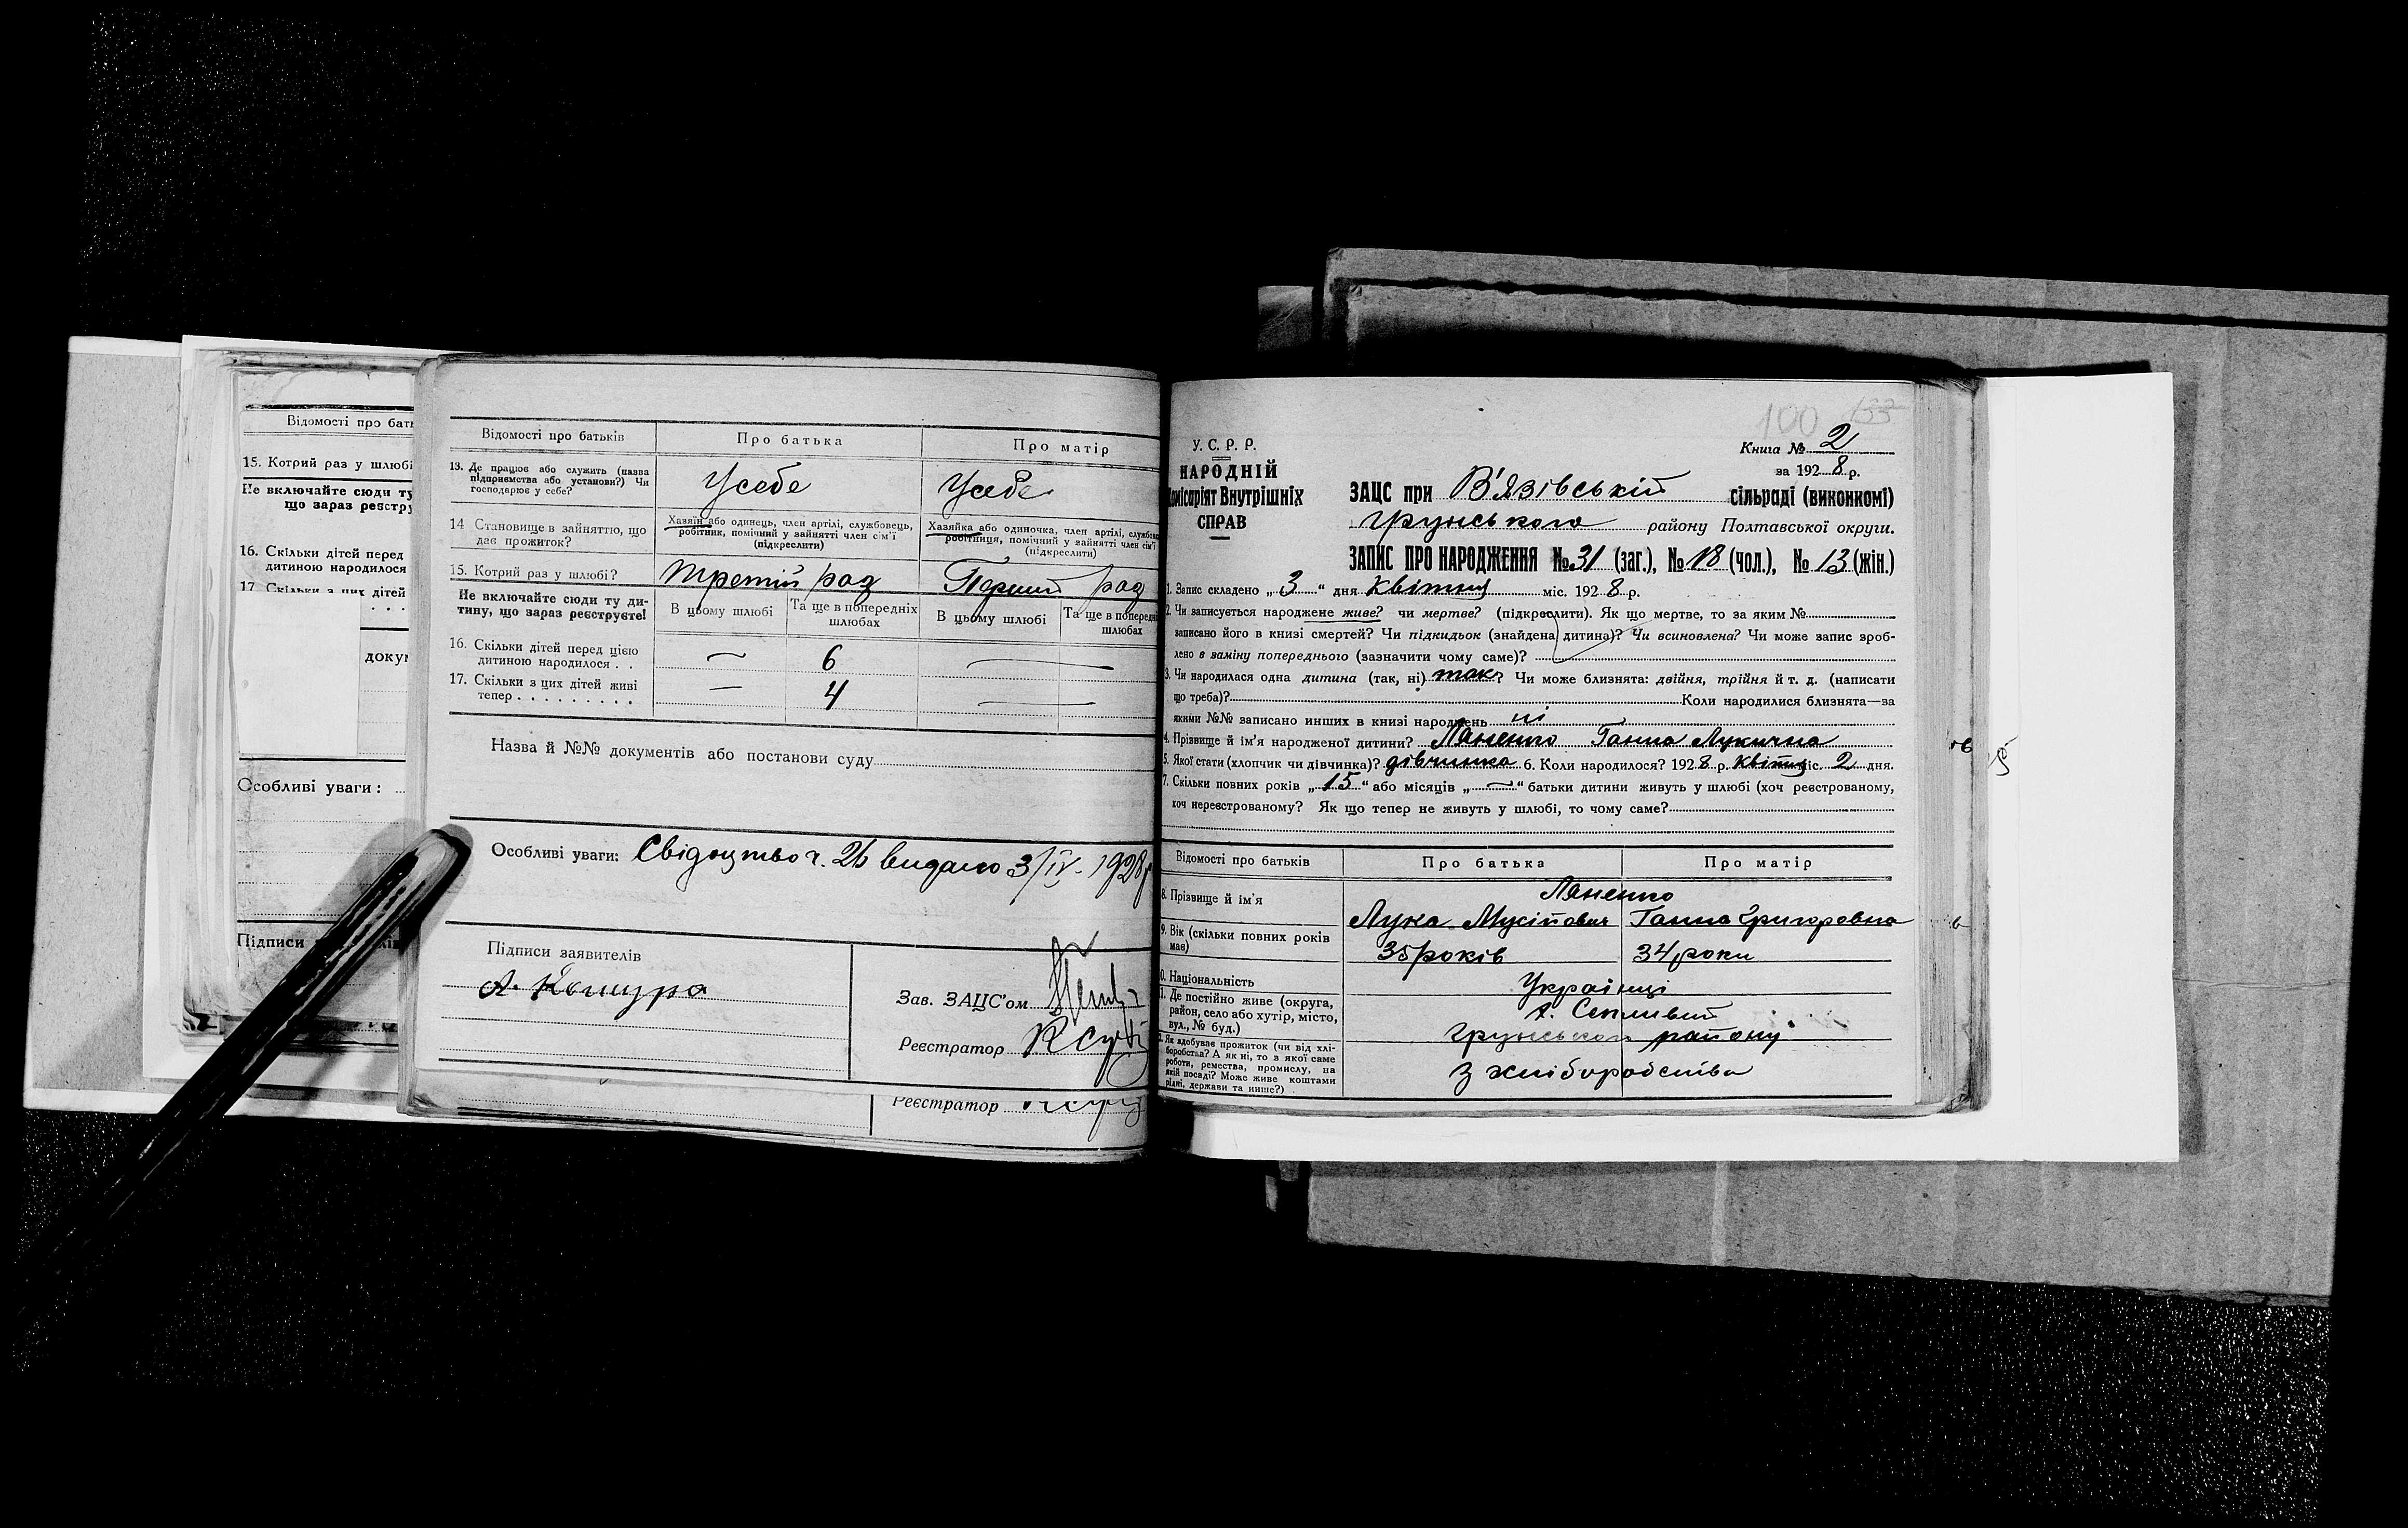 Відомості про бать
15. Котрий раз у шлюбі
Не включайте сюди ту
що зараз реєстру
16. Скільки дітей перед
дитиною народилося
17. Скільки з цих дітей
докум
Особливі уваги:
Підписи
Відомості про батьків Про батька Про матір
13. Де працює або служить (назва підприємства або установи?) Чи господарює у себе? Усебе Усебе
14 Становище в зайняттю, що дає прожиток? Хазяїн або одинець, член артілі, службовець, робітник, помічний у зайнятті член сім'ї (підкреслити) Хазяйка або одиночка, член артілі, службов робітниця, помічний у зайнятті член сім'ї (підкреслити)
15. Котрий раз у шлюбі? Третій раз Перший раз
Не включайте сюди ту дитину, що зараз реєструєте! В цьому шлюбі Та ще в попередніх шлюбах В цьому шлюбі Та ще в попередн шлюбах
16. Скільки дітей перед цією дитиною народилося . . — 6 —
17. Скільки з цих дітей живі тепер . . . . . . . . . — 4 —
Назва й №№ документів або постанови суду
Особливі уваги: Свідоцтво ч. 26 видано 3/IV- 1928 р
Підписи заявителів
Зав. ЗАЦС'ом
Реєстратор
Реєстратор
100 133
У. С. Р. Р.
НАРОДНІЙ
Комісаріят Внутрішніх
СПРАВ
Книга № 2
за 1928 р.
ЗАЦС при В'язівській сільраді (виконкомі)
Грунського району Полтавської округи.
ЗАПИС ПРО НАРОДЖЕННЯ № 31 (заг.), № 18 (чол.), № 13 (жін.)
1. Запис складено „ 3 “ дня Квітня міс. 1928 р.
2. Чи записується народжене живе? чи мертве? (підкреслити). Як що мертве, то за яким №
записано його в книзі смертей? Чи підкидьок (знайдена дитина)? Чи всиновлена? Чи може запис зроб-
лено в заміну попереднього (зазначити чому саме)?
3. Чи народилася одна дитина (так, ні) так? Чи може близнята: двійня, трійня й т. д. (написати
що треба)? Коли народилися близнята—за
якими №№ записано инших в книзі народжень ні
4. Прізвище й ім'я народженої дитини? Ганна Лукична
5. Якої стати (хлопчик чи дівчинка)? дівчинка 6. Коли народилося? 1928 р. Квітня міс. 2 дня.
7. Скільки повних років „ 15 “ або місяців „ — “ батьки дитини живуть у шлюбі (хоч реєстрованому,
хоч нереєстрованому? Як що тепер не живуть у шлюбі, то чому саме?
Відомості про батьків Про батька Про матір
8. Прізвище й ім'я
Лука Мусійович Ганна Григоровна
9. Вік (скільки повних років має) 35 років 34 роки
10. Національність Українці
11. Де постійно живе (округа, район, село або хутір, місто, вул., № буд.)
Грунського району
12. Як здобуває прожиток (чи від хліборобства? А як ні, то з якої саме роботи, ремества, промислу, на якій посаді? Може живе коштами рідні, держави та инше?) З хліборобства